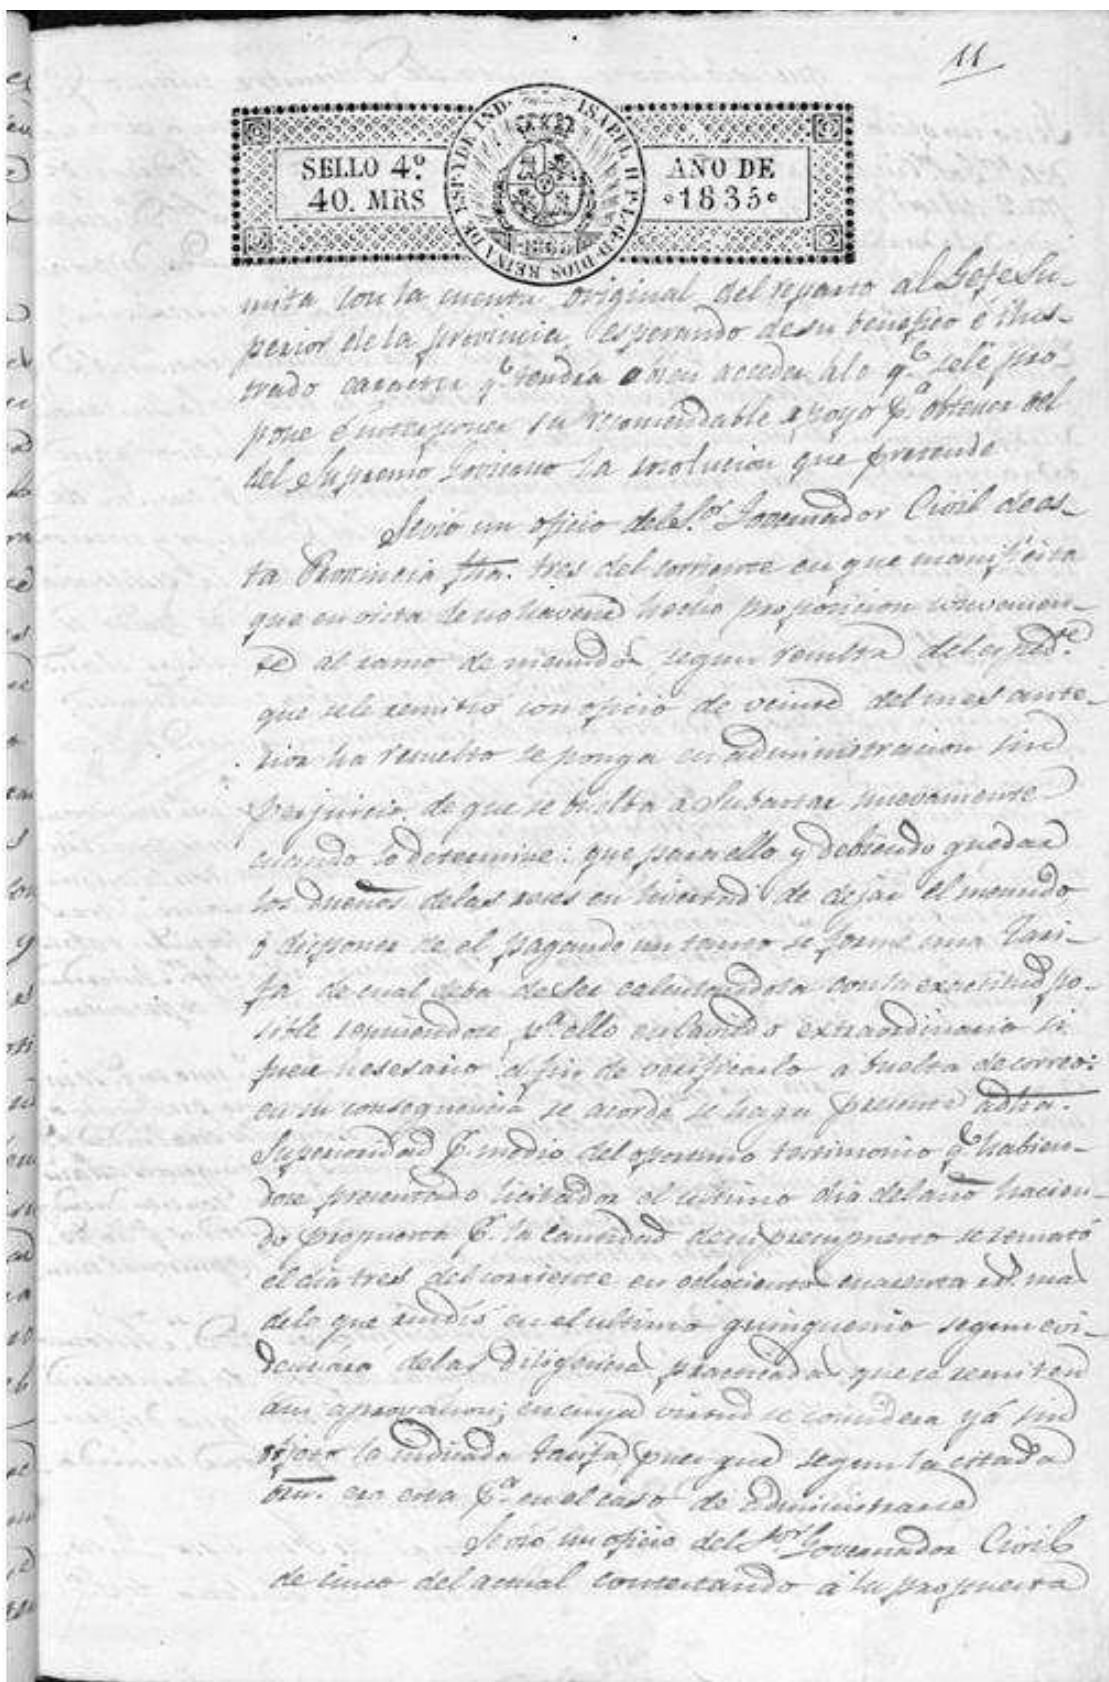 11
SELLO 4.º
40. MRS
ISABEL II P. L. G. D. DIOS REINA DE ESP. Y DE IND.
1835
AÑO DE
1835
mita con la cuenta original del reparto al Gefe Su-
perior de la provincia, esperando de su benefico é ilus-
trado caracter q.e tendra á bien acceder á lo q.e se le pro-
pone é interponer su recomendable apoyo p.a obtener del
del Supremo Govierno la resolucion que pretende
Se vió un oficio del S.or Governador Civil de es-
ta Provincia fha. tres del corriente en que manifiesta
que en vista de no haverse hecho proposicion conveniene-
te al ramo de menudos, segun resulta del exped.te
que se le remitió con oficio de veinte del mes ante-
rior ha resuelto se ponga en administracion sin
perjuicio de que se buelba a subastar nuevamente
cuando lo determine: que para ello y debiendo quedar
los dueños de las reses en livertad de dejar el menudo
ó disponer de el pagando un tanto se forme una Tari-
fa de cual deba de ser calculandola con la exactitud po-
sible reuniendose p.a ello en cavildo extraordinario si
fuere nesesario á fin de verificarlo a buelta de correo:
en su consequencia se acordó se haga presente a dha.
Superioridad p.r medio del oportuno testimonio q.e habien-
dose presentado licitador el ultimo dia del año hacien-
do propuesta p.r la cantidad de su presupuesto se remató
el dia tres del corriente en ochocientos cuarenta rs. mas
de lo que rindió en el ultimo quinquenio segun evi-
denciara de las diligencias practicadas que se remiten
á su aprovacion; en cuya virtud se considera yá sin
objeto la indicada tarifa, pues que segun la citada
orn. era esta p.a en el caso de Administrarse
Se vió un oficio del S.or Governador Civil
de cinco del actual contestando á la propuesta